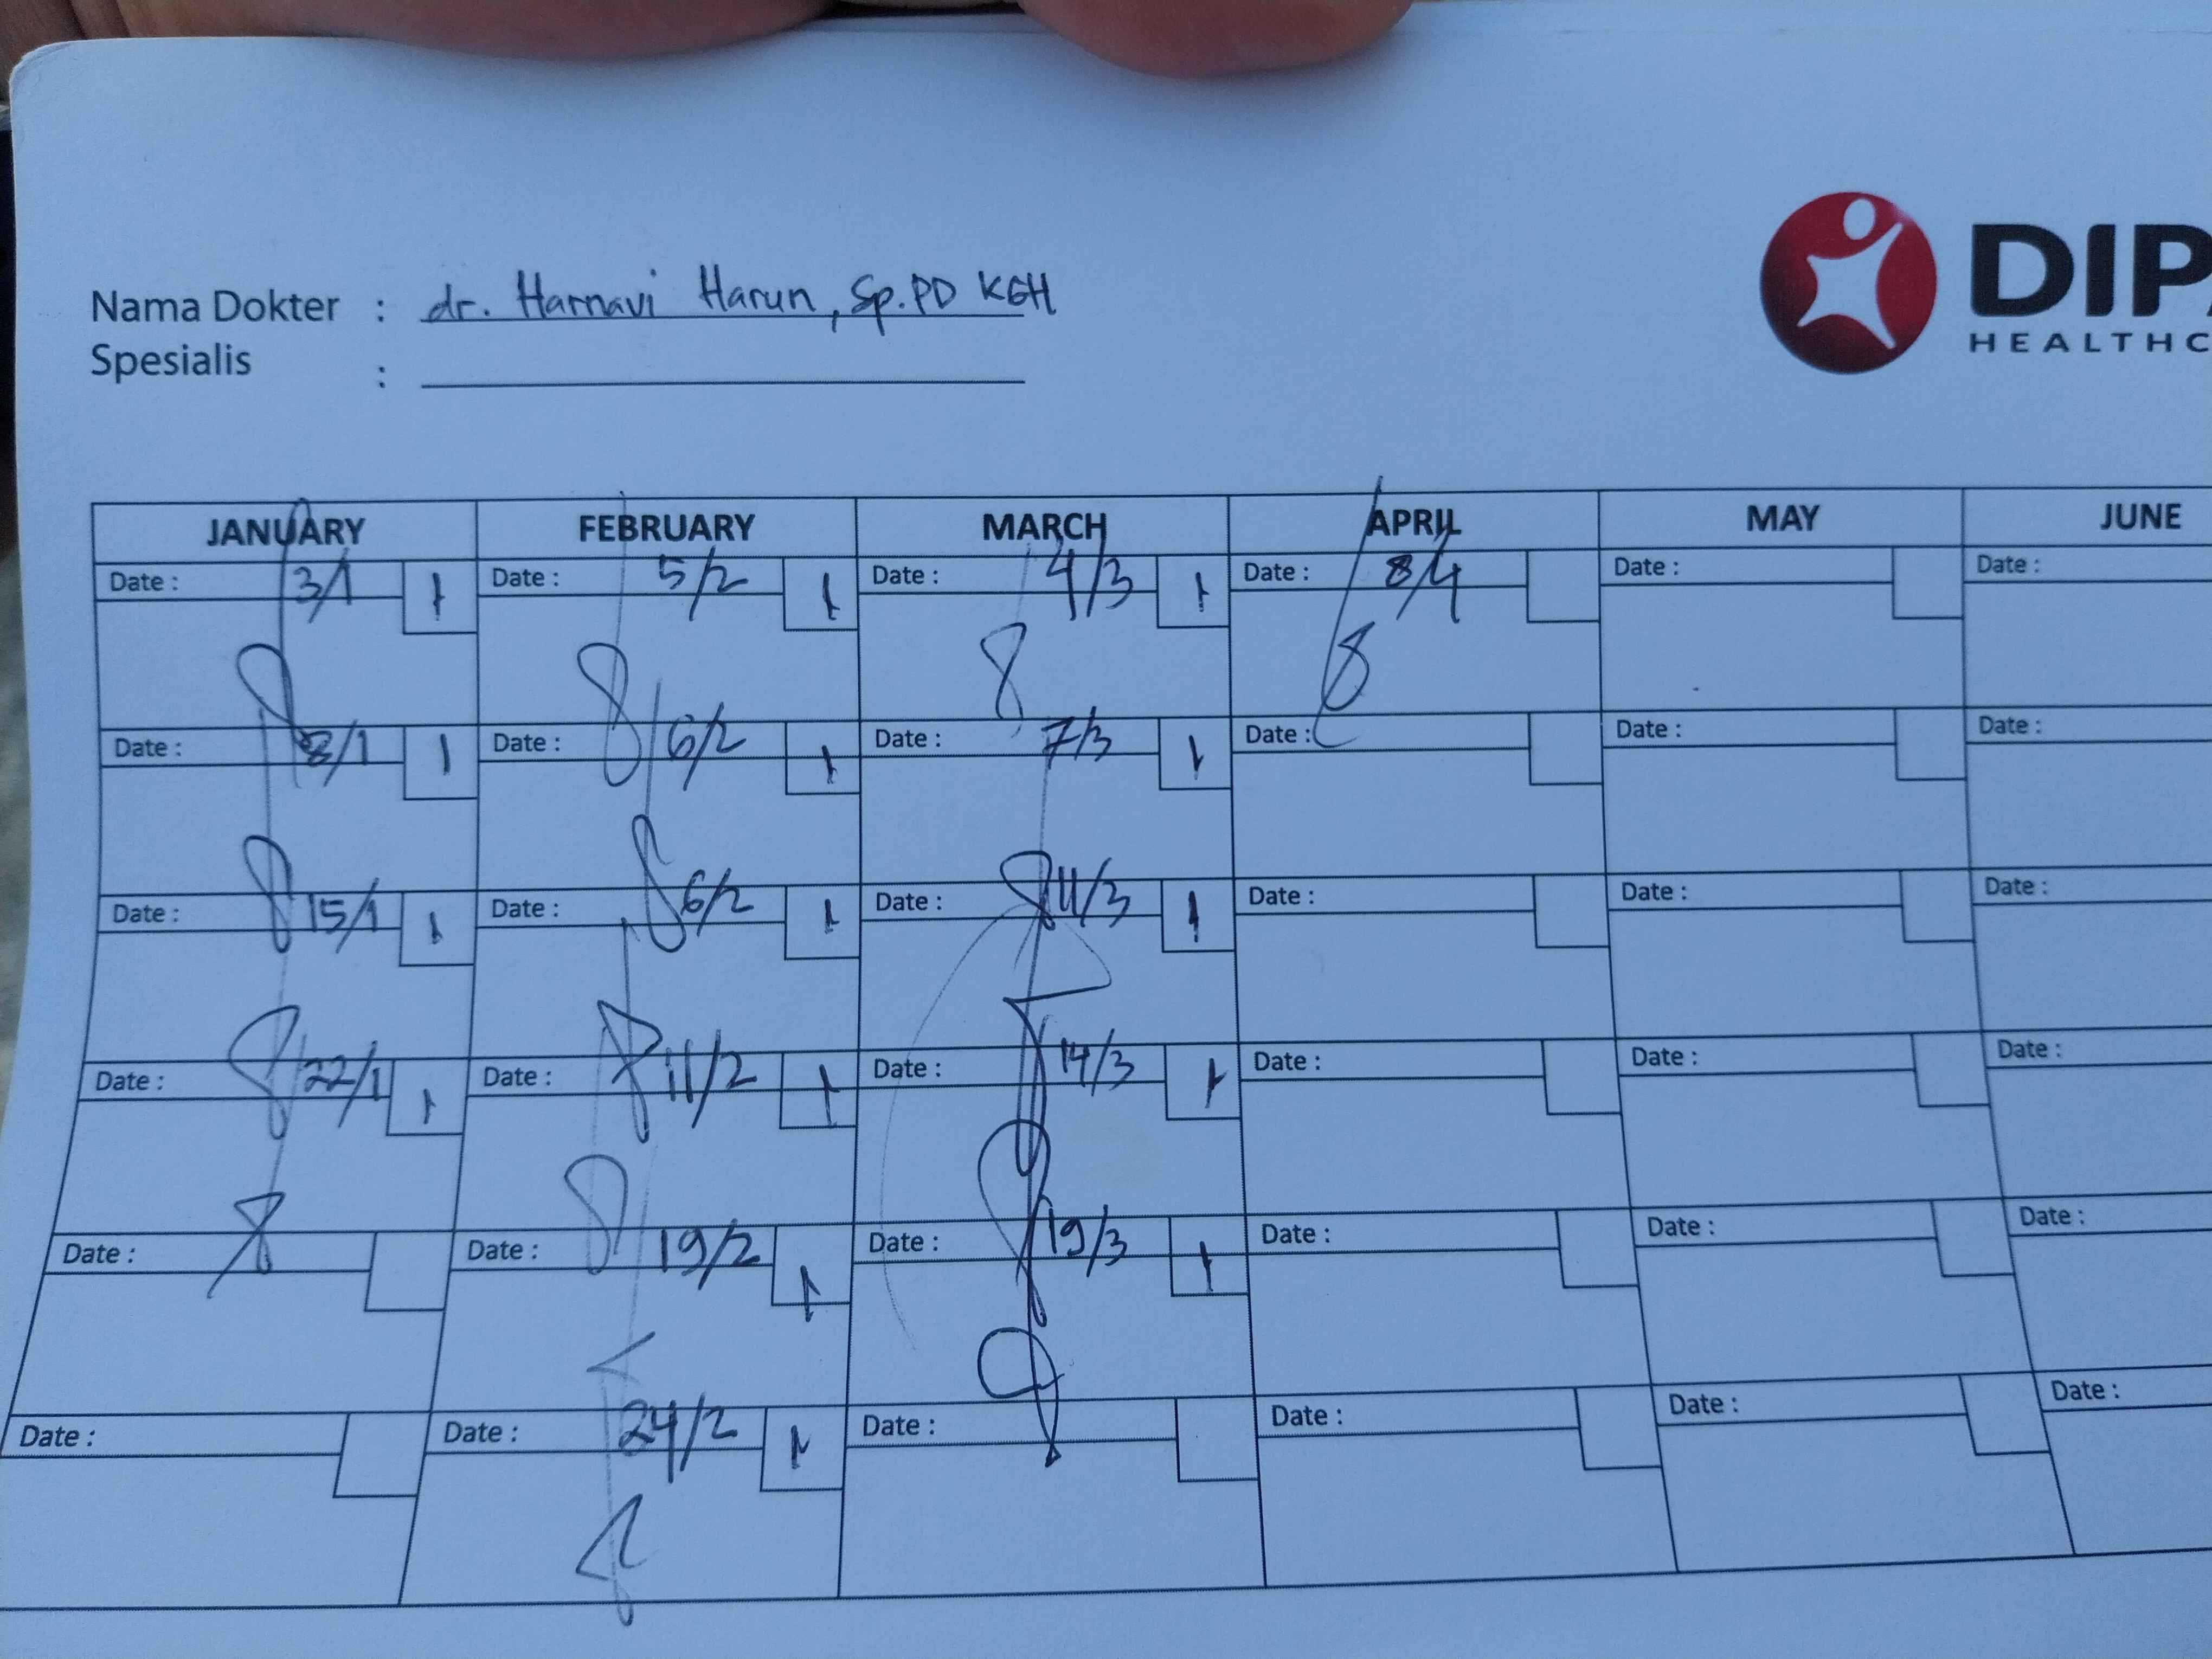 DIPA
HEALTHC
Nama Dokter : dr. Harnavi Harun, Sp.PD KGH
Spesialis :
JANUARY FEBRUARY MARCH APRIL MAY JUNE
Date : 3/1 1 Date : 5/2 1 Date : 4/3 1 Date : 8/4 Date : Date :
Date : 8/1 1 Date : 6/2 1 Date : 7/3 1 Date : Date : Date :
Date : 15/1 1 Date : 6/2 1 Date : 11/3 1 Date : Date : Date :
Date : 22/1 1 Date : 11/2 1 Date : 14/3 1 Date : Date : Date :
Date : Date : 19/2 1 Date : 19/3 1 Date : Date : Date :
Date : Date : 24/2 1 Date : Date : Date : Date :